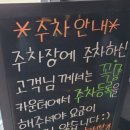 *주차안내*
주차장에 주차하신
고객님 께서는 꼭꼭
카운터에서 주차등록을
해주셔야 요금이
않습니다 :)